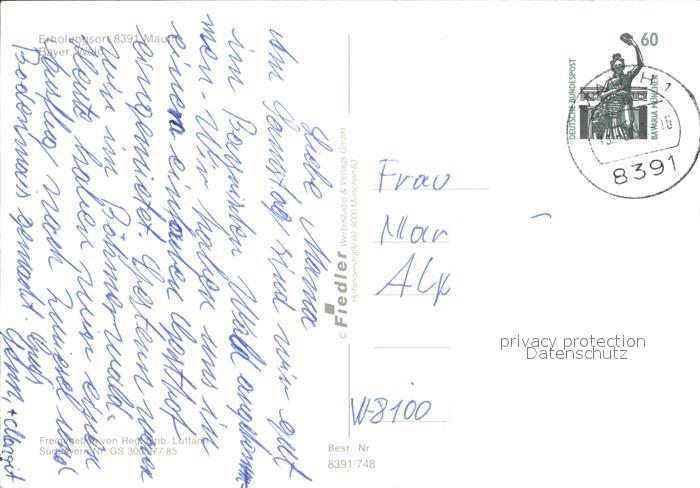 Erholungsort 8391 Mauth
Bayer. Wald
Liebe Mama
Am Samstag sind wir gut
im Bayrischen Wald angekom-
men. Wir haben uns in
einem einfachen Gasthof
einquartiert. Gestern waren
wir im Böhmerwald.
Heute haben wir einen
Ausflug nach Zwiesel und
Bodenmais gemacht. Gruß
+ Margit
Freigegeben von Reg. Obb. Luftamt
Südbayern Nr. GS 300
© Fiedler Werbestudio & Verlags GmbH
8000 München 83
Best. Nr
8391/748
DEUTSCHE BUNDESPOST
60
BAVARIA MÜNCHEN
8391
Frau
Mar
Alp
W-8100
privacy protection
Datenschutz